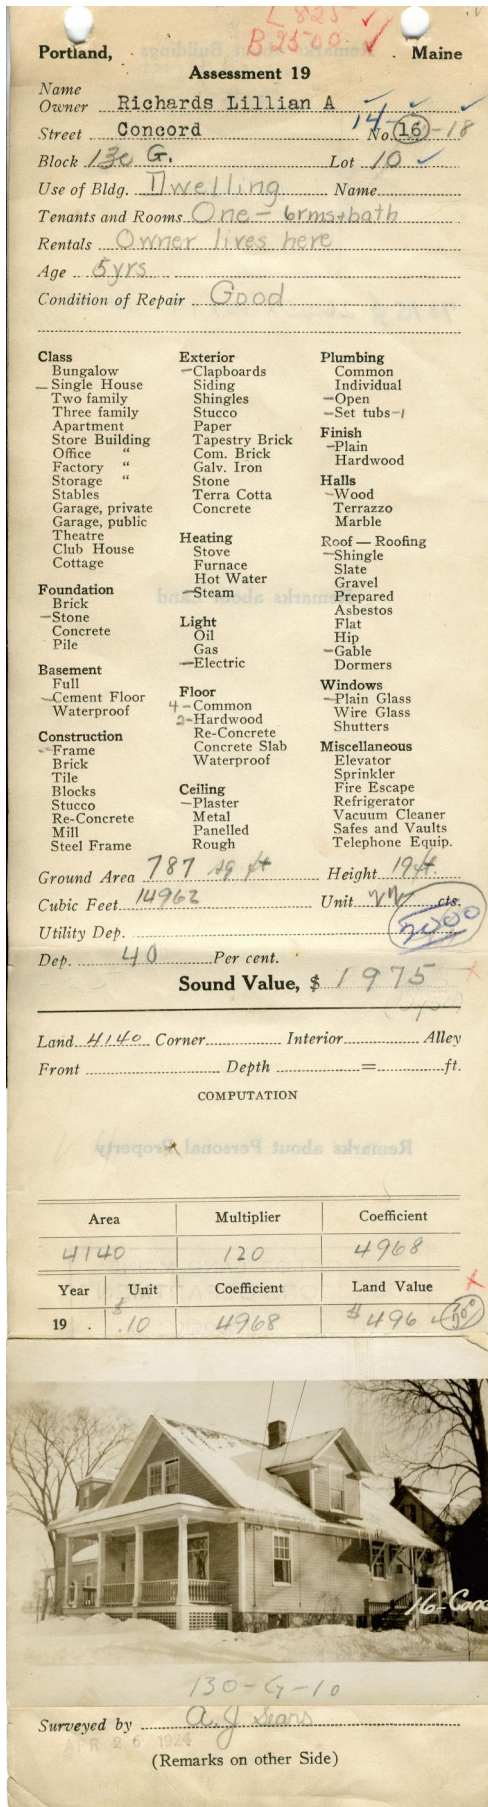 L 825 ✓
B 2500 ✓
Portland, Maine
Assessment 19
Name
Owner Richards Lillian A
Street Concord 14- No. 16 -18
Block 130 G. Lot 10
Use of Bldg. Dwelling Name
Tenants and Rooms One - 6rms+bath
Rentals Owner lives here
Age 5yrs
Condition of Repair Good
Class
Bungalow
Single House
Two family
Three family
Apartment
Store Building
Office "
Factory "
Storage "
Stables
Garage, private
Garage, public
Theatre
Club House
Cottage
Foundation
Brick
Stone
Concrete
Pile
Basement
Full
Cement Floor
Waterproof
Construction
Frame
Brick
Tile
Blocks
Stucco
Re-Concrete
Mill
Steel Frame
Exterior
Clapboards
Siding
Shingles
Stucco
Paper
Tapestry Brick
Com. Brick
Galv. Iron
Stone
Terra Cotta
Concrete
Heating
Stove
Furnace
Hot Water
Steam
Light
Oil
Gas
Electric
Floor
4 - Common
2 - Hardwood
Re-Concrete
Concrete Slab
Waterproof
Ceiling
Plaster
Metal
Panelled
Rough
Plumbing
Common
Individual
Open
Set tubs -1
Finish
Plain
Hardwood
Halls
Wood
Terrazzo
Marble
Roof — Roofing
Shingle
Slate
Gravel
Prepared
Asbestos
Flat
Hip
Gable
Dormers
Windows
Plain Glass
Wire Glass
Shutters
Miscellaneous
Elevator
Sprinkler
Fire Escape
Refrigerator
Vacuum Cleaner
Safes and Vaults
Telephone Equip.
Ground Area 787 sq ft Height 19 ft.
Cubic Feet 14962 Unit 22 cts.
Utility Dep. 2000
Dep. 40 Per cent.
Sound Value, $ 1975
Land 4140 Corner Interior Alley
Front Depth = ft.
COMPUTATION
Remarks about Personal Property
Area Multiplier Coefficient
4140 120 4968
Year Unit Coefficient Land Value
19 . $ .10 4968 $ 496
16-Conc
130-G-10
Surveyed by A. J Sears
APR 26 1924
(Remarks on other Side)